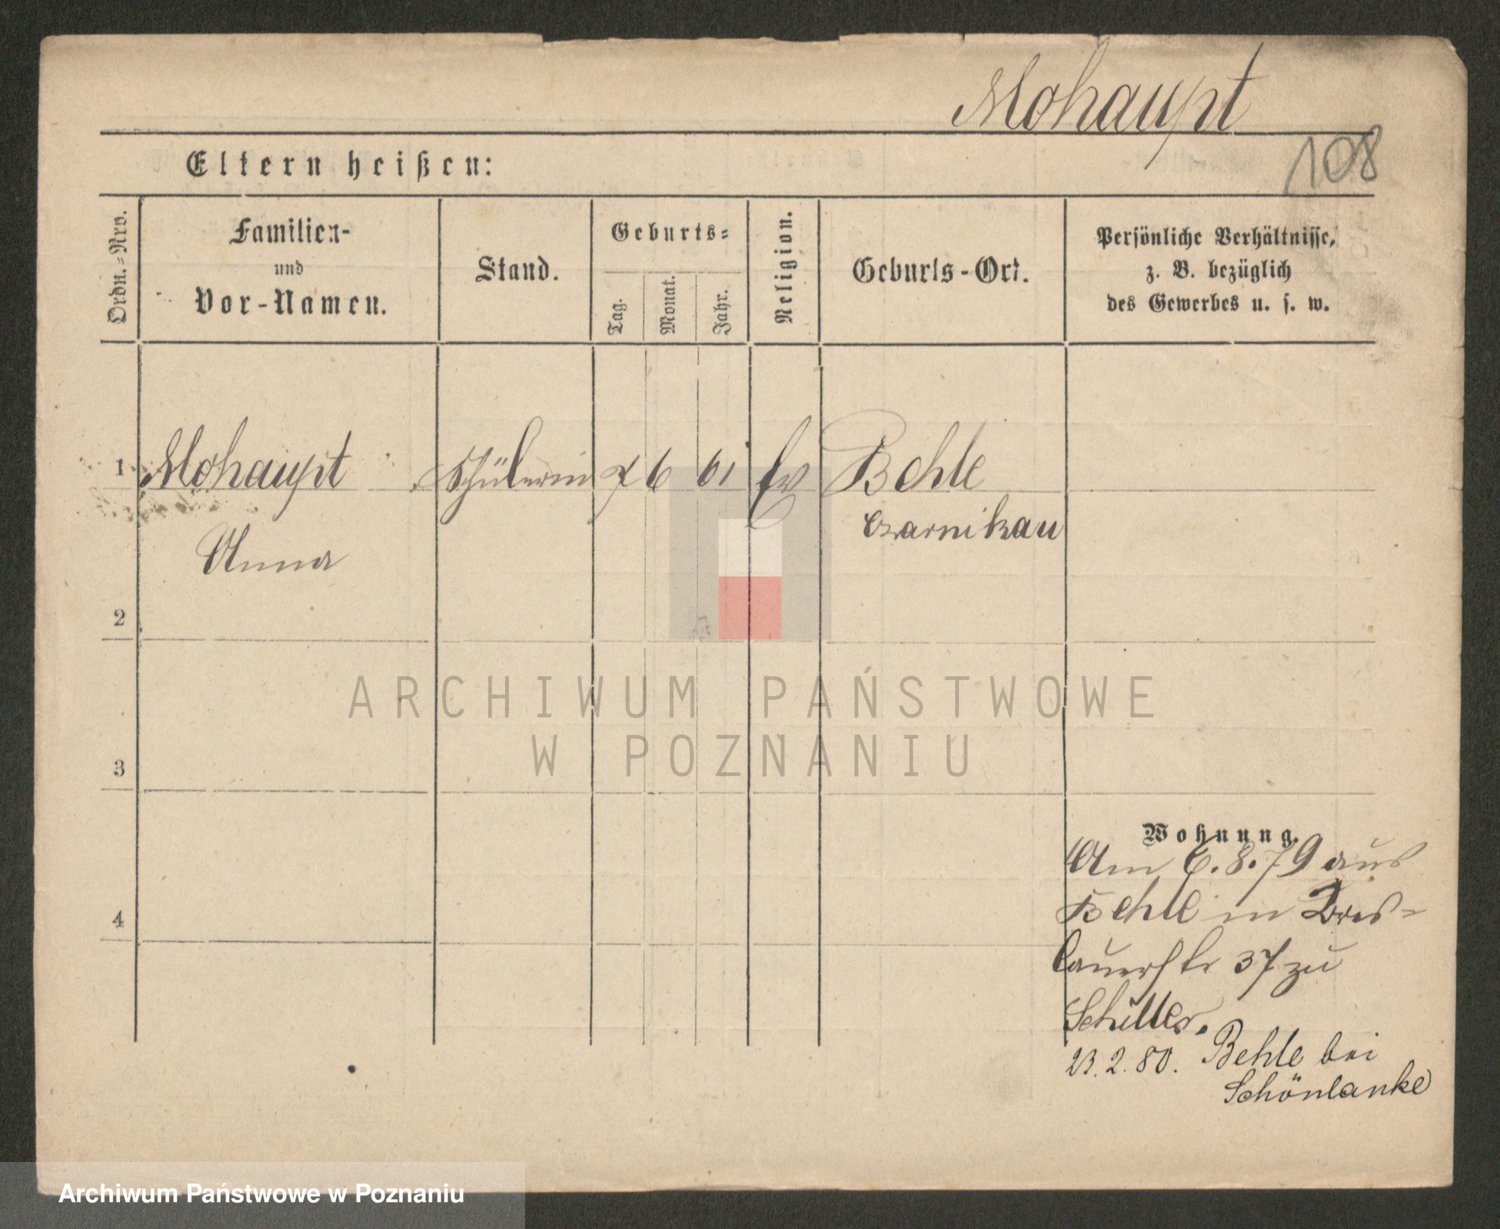 Mohaupt
108
Eltern heißen:
Ordn.-Nro.
Familien-
und
Vor-Namen.
Stand.
Geburts-
Tag.
Monat.
Jahr.
Religion.
Geburts-Ort.
Persönliche Verhältnisse,
z. B. bezüglich
des Gewerbes u. s. w.
1 Mohaupt Schülerin 7 6 61 Ev Behle
Czarnikau
Anna
2
3
4
ARCHIWUM PAŃSTWOWE
W POZNANIU
Wohnung.
Am 6.8.79 aus
Behle in Bres-
lauerstr 37 zu
Schiller.
23.2.80. Behle bei
Schönlanke
Archiwum Państwowe w Poznaniu